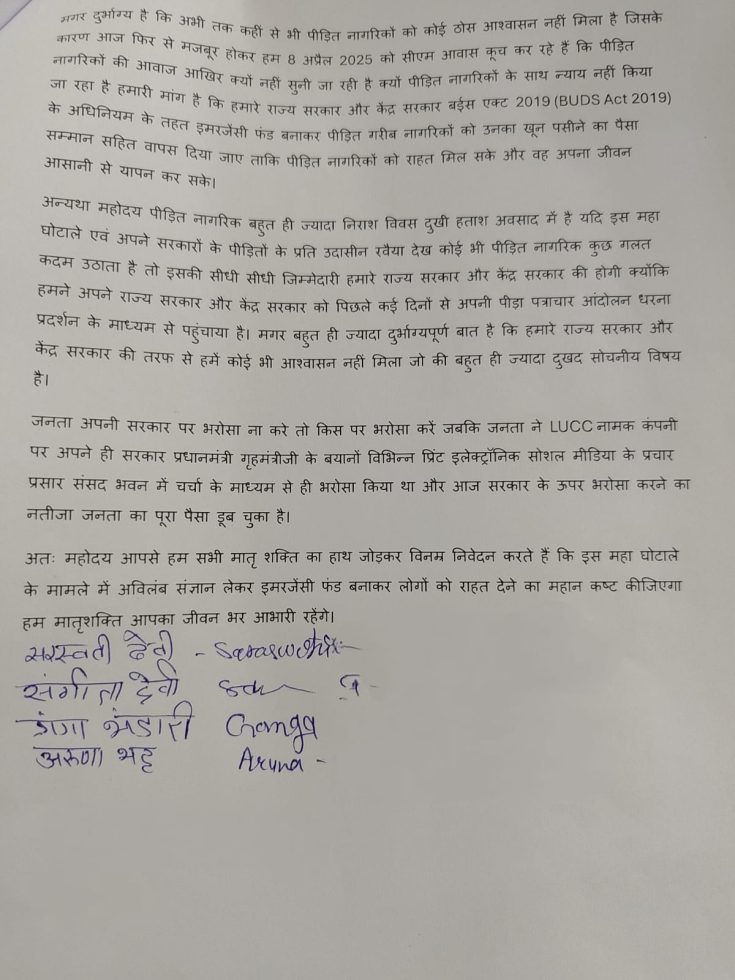 मगर दुर्भाग्य है कि अभी तक कहीं से भी पीड़ित नागरिकों को कोई ठोस आश्वासन नहीं मिला है जिसके
कारण आज फिर से मजबूर होकर हम 8 अप्रैल 2025 को सीएम आवास कूच कर रहे हैं कि पीड़ित
नागरिकों की आवाज आखिर क्यों नहीं सुनी जा रही है क्यों पीड़ित नागरिकों के साथ न्याय नहीं किया
जा रहा है हमारी मांग है कि हमारे राज्य सरकार और केंद्र सरकार बर्ड्स एक्ट 2019 (BUDS Act 2019)
के अधिनियम के तहत इमरजेंसी फंड बनाकर पीड़ित गरीब नागरिकों को उनका खून पसीने का पैसा
सम्मान सहित वापस दिया जाए ताकि पीड़ित नागरिकों को राहत मिल सके और वह अपना जीवन
आसानी से यापन कर सके।
अन्यथा महोदय पीड़ित नागरिक बहुत ही ज्यादा निराश विवस दुखी हताश अवसाद में है यदि इस महा
घोटाले एवं अपने सरकारों के पीड़ितों के प्रति उदासीन रवैया देख कोई भी पीड़ित नागरिक कुछ गलत
कदम उठाता है तो इसकी सीधी सीधी जिम्मेदारी हमारे राज्य सरकार और केंद्र सरकार की होगी क्योंकि
हमने अपने राज्य सरकार और केंद्र सरकार को पिछले कई दिनों से अपनी पीड़ा पत्राचार आंदोलन धरना
प्रदर्शन के माध्यम से पहुंचाया है। मगर बहुत ही ज्यादा दुर्भाग्यपूर्ण बात है कि हमारे राज्य सरकार और
केंद्र सरकार की तरफ से हमें कोई भी आश्वासन नहीं मिला जो की बहुत ही ज्यादा दुखद सोचनीय विषय
है।
जनता अपनी सरकार पर भरोसा ना करे तो किस पर भरोसा करें जबकि जनता ने LUCC नामक कंपनी
पर अपने ही सरकार प्रधानमंत्री गृहमंत्रीजी के बयानों विभिन्न प्रिंट इलेक्ट्रॉनिक सोशल मीडिया के प्रचार
प्रसार संसद भवन में चर्चा के माध्यम से ही भरोसा किया था और आज सरकार के ऊपर भरोसा करने का
नतीजा जनता का पूरा पैसा डूब चुका है।
अतः महोदय आपसे हम सभी मातृ शक्ति का हाथ जोड़कर विनम्र निवेदन करते हैं कि इस महा घोटाले
के मामले में अविलंब संज्ञान लेकर इमरजेंसी फंड बनाकर लोगों को राहत देने का महान कष्ट कीजिएगा
हम मातृशक्ति आपका जीवन भर आभारी रहेंगे।
सरस्वती देवी -
संगीता देवी
गंगा भंडारी Ganga
अरुणा भट्ट Aruna -